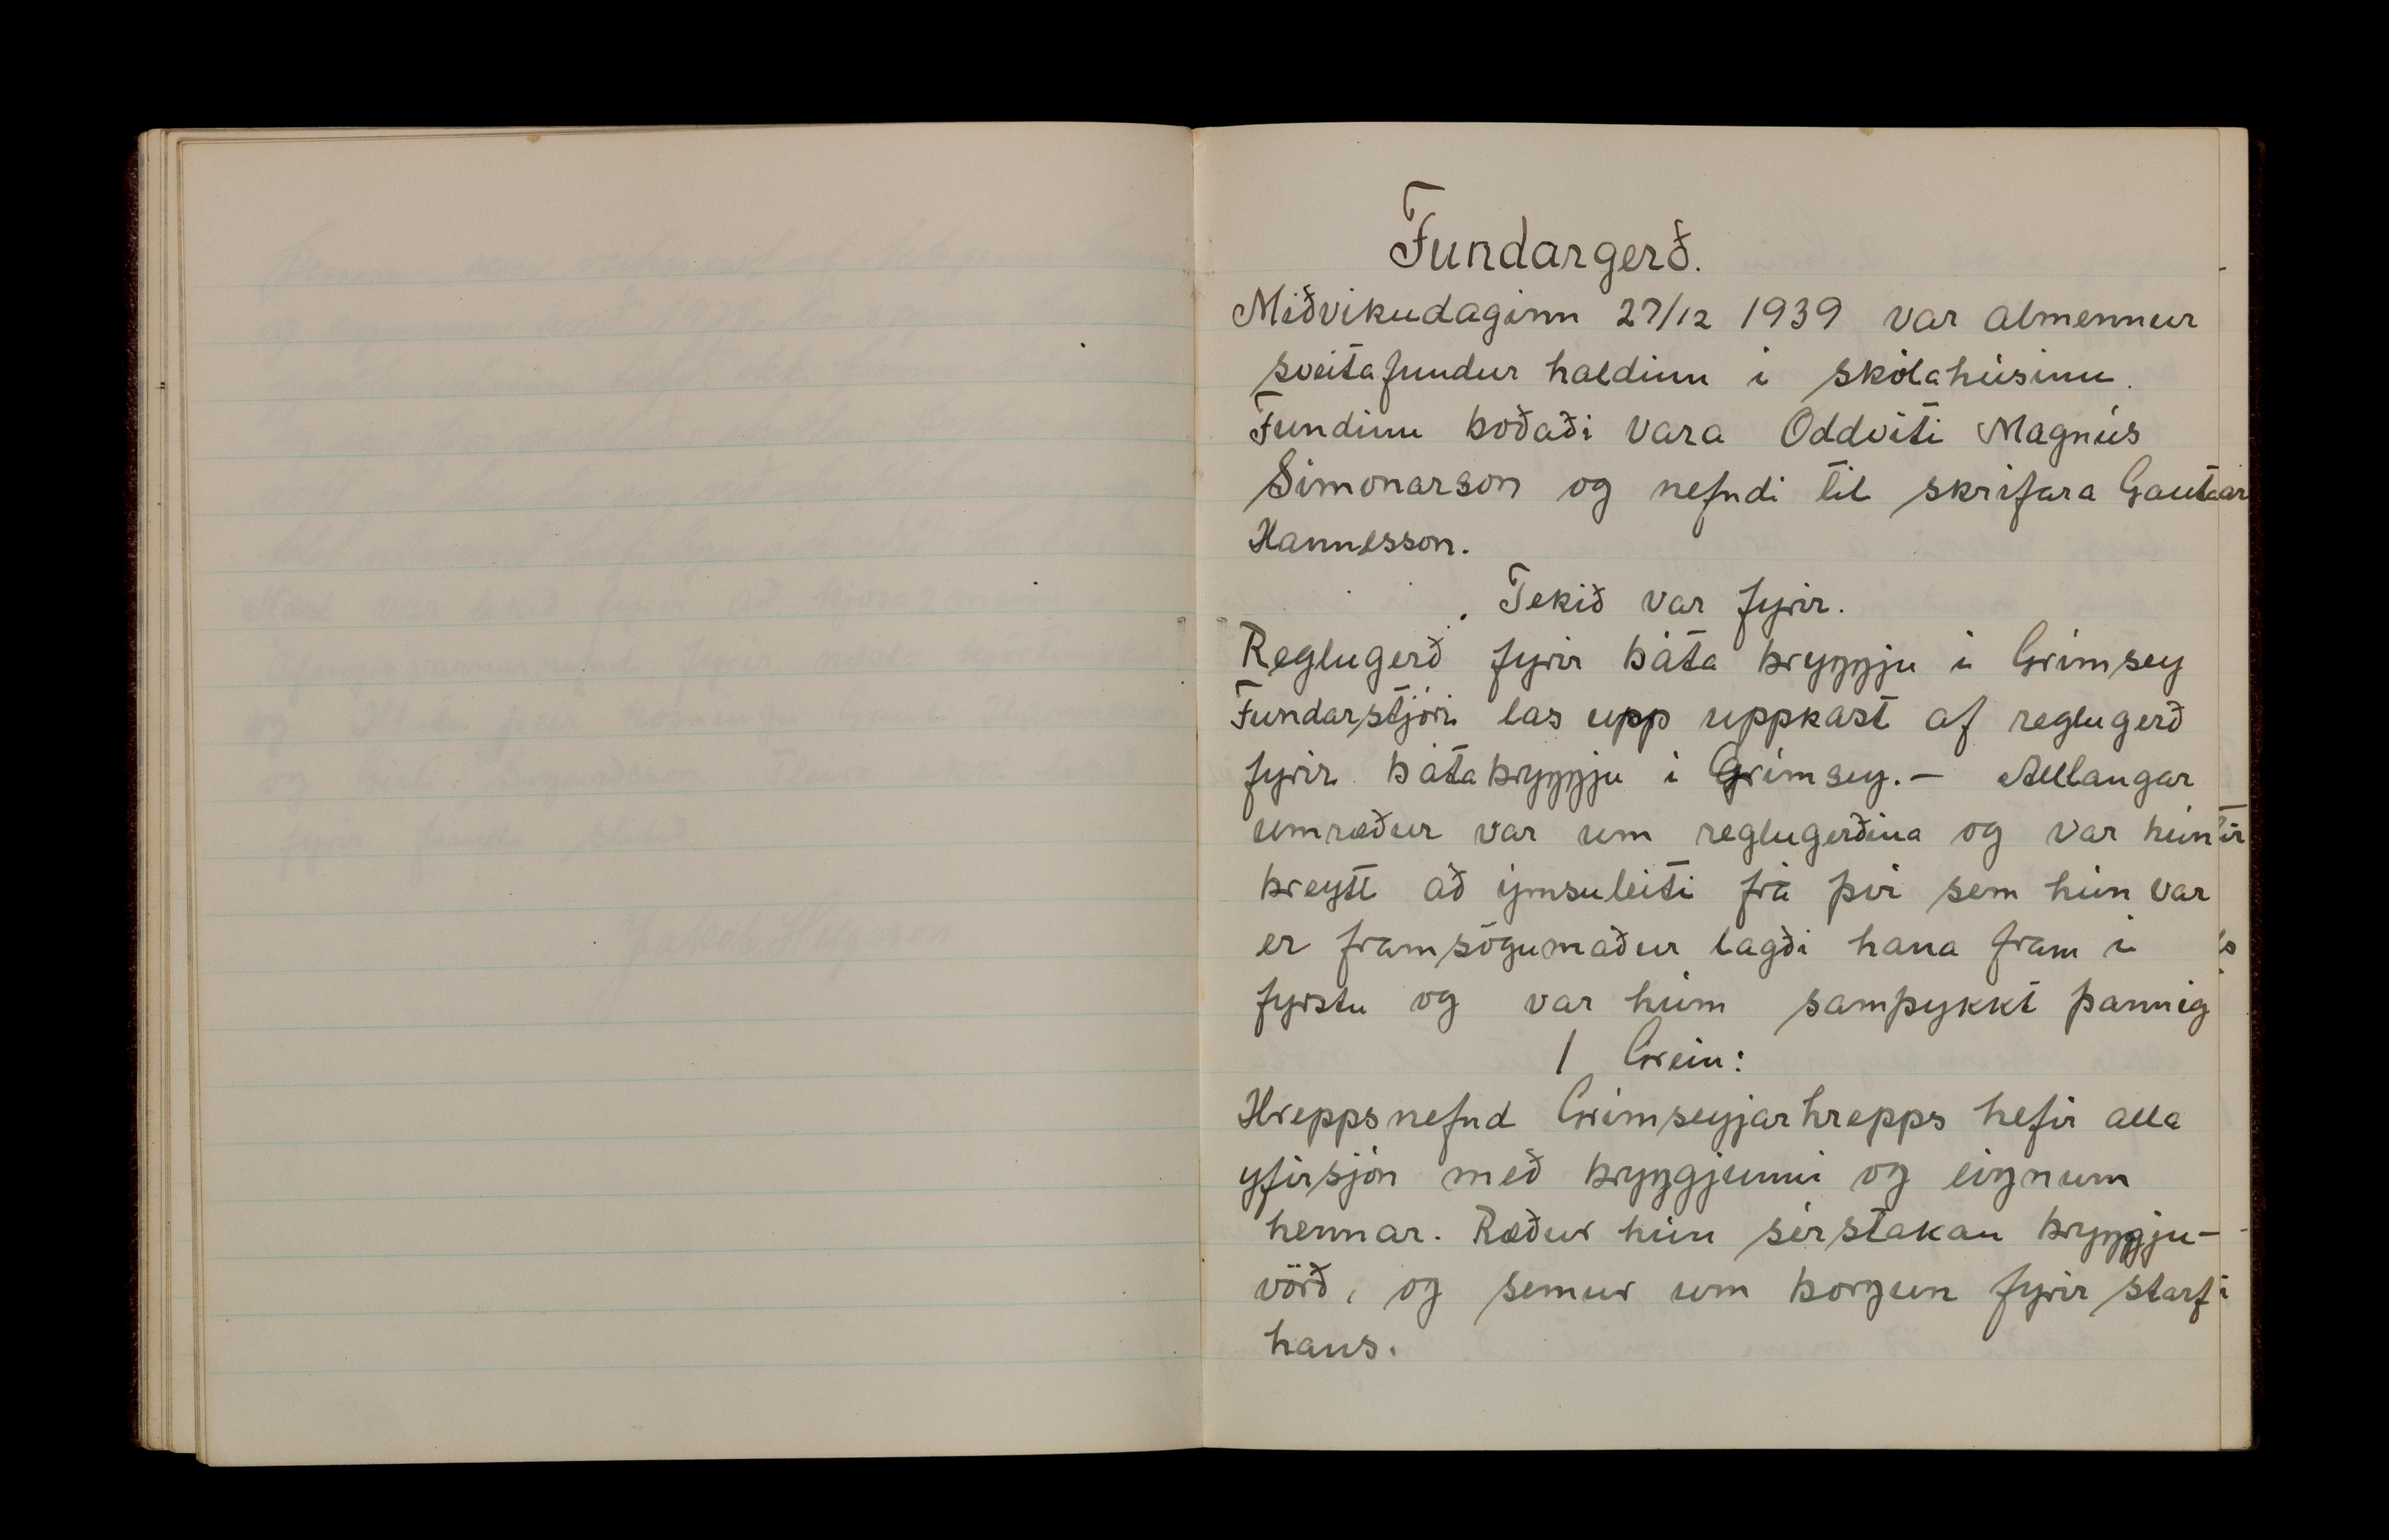 Fundargerð.
Miðvikudaginn 27/12 1939 var almennur
sveitafundur haldinn í skólahúsinu.
Fundinn boðaði vara Oddviti Magnús
Símonarson og nefndi til skrifara Gautar
Hannesson.
Tekið var fyrir.
Reglugerð fyrir báta bryggju í Grímsey
Fundarstjóri las upp uppkast af reglugerð
fyrir bátabryggju í Grímsey. — Allangar
umræður var um reglugerðina og var hún
breytt að ýmsuleiti frá því sem hún var
er framsögumaður lagði hana fram í
fyrstu og var húm samþykkt þannig
1 Grein:
Hreppsnefnd Grímseyjarhrepps hefir alla
yfirsjón með bryggjunni og eignum
hennar. Ræður hún sérstakan bryggju-
vörð, og semur um borgun fyrir starf
hans.